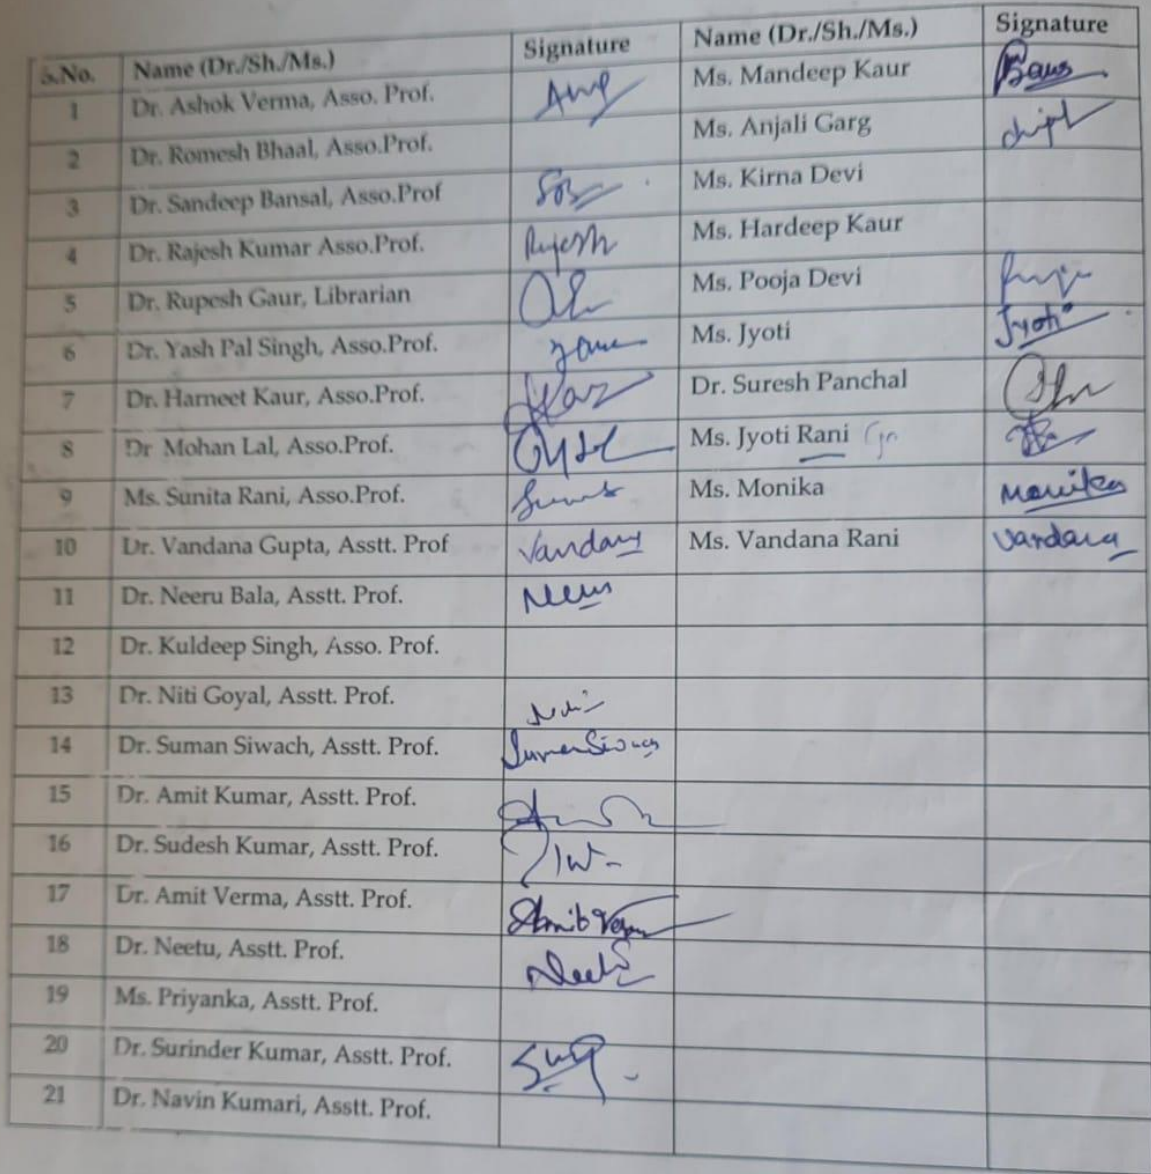 S.No. Name (Dr./Sh./Ms.) Signature Name (Dr./Sh./Ms.) Signature
1 Dr. Ashok Verma, Asso. Prof. Ms. Mandeep Kaur
2 Dr. Romesh Bhaal, Asso.Prof. Ms. Anjali Garg
3 Dr. Sandeep Bansal, Asso.Prof Ms. Kirna Devi
4 Dr. Rajesh Kumar Asso.Prof. Rajesh Ms. Hardeep Kaur
5 Dr. Rupesh Gaur, Librarian Ms. Pooja Devi
6 Dr. Yash Pal Singh, Asso.Prof. Ms. Jyoti Jyoti
7 Dr. Harneet Kaur, Asso.Prof. Dr. Suresh Panchal
8 Dr Mohan Lal, Asso.Prof. Ms. Jyoti Rani
9 Ms. Sunita Rani, Asso.Prof. Ms. Monika Monika
10 Dr. Vandana Gupta, Asstt. Prof Vandana Ms. Vandana Rani Vandana
11 Dr. Neeru Bala, Asstt. Prof.
12 Dr. Kuldeep Singh, Asso. Prof.
13 Dr. Niti Goyal, Asstt. Prof.
14 Dr. Suman Siwach, Asstt. Prof. Suman Siwach
15 Dr. Amit Kumar, Asstt. Prof.
16 Dr. Sudesh Kumar, Asstt. Prof.
17 Dr. Amit Verma, Asstt. Prof. Amit Verma
18 Dr. Neetu, Asstt. Prof.
19 Ms. Priyanka, Asstt. Prof.
20 Dr. Surinder Kumar, Asstt. Prof.
21 Dr. Navin Kumari, Asstt. Prof.